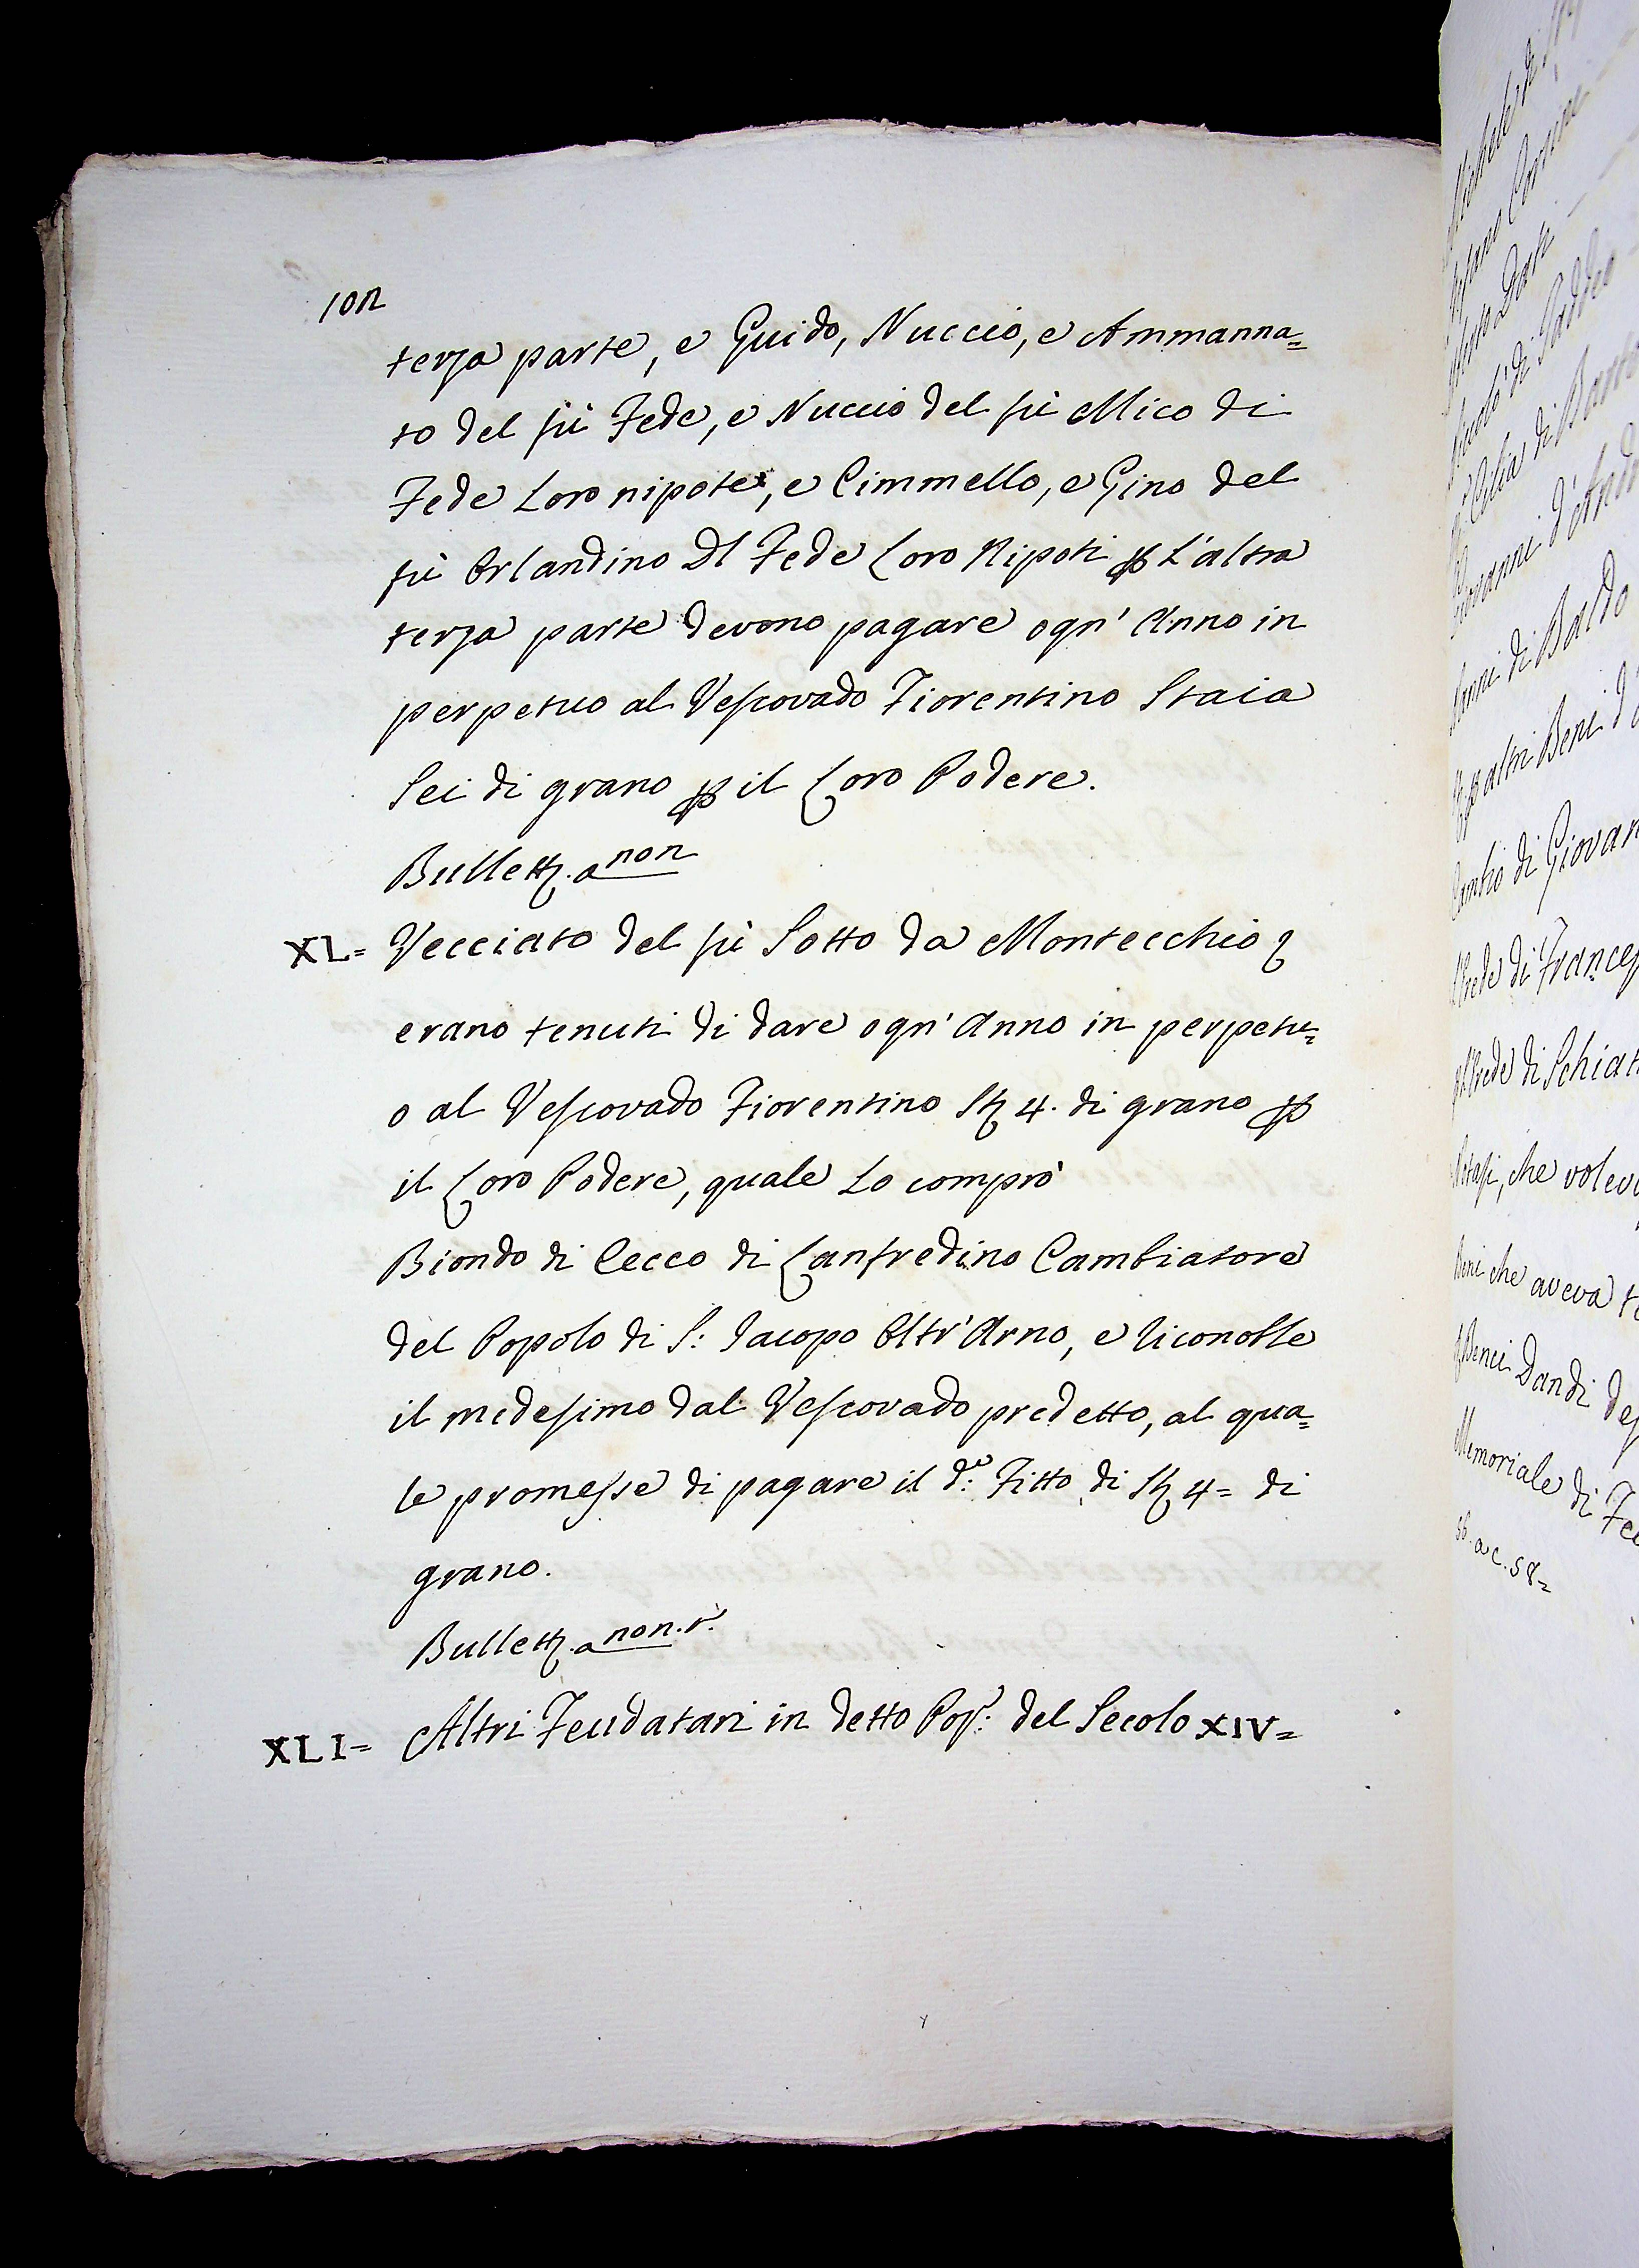 102
terza parte, e Guido, Nuccio, e Ammanna=
to del fù Fede, e Nuccio del fù Mico di
Fede Loro nipote, e Cimmello, e Gino del
fù Orlandino Dl Fede Loro Nipoti ꝑ L'altra
terza parte devono pagare ogn' Anno in
perpetuo al Vescovado Fiorentino Staia
Sei di grano ꝑ il Loro Podere.
Bullett. a non
XL= Vecciato del fù Sotto da Montecchio
erano tenuti di dare ogn' Anno in perpetu=
o al Vescovado Fiorentino St 4. di grano ꝑ
il Loro Podere, quale Lo comprò
Biondo di Cecco di Lanfredino Cambiatore
del Popolo di S: Jacopo Oltr'Arno, e riconobbe
il medesimo dal Vescovado predetto, al qua=
le promesse di pagare il d:o Fitto di St 4= di
grano.
Bullett. a non. r.
XLI= Altri Feudatari in detto Pop: del Secolo XIV=
di Baldo
altri Beni
di Giovan
di Frances
di Schiat
che volev
che aveva
Dandi
Memoriale di
a c. 58=